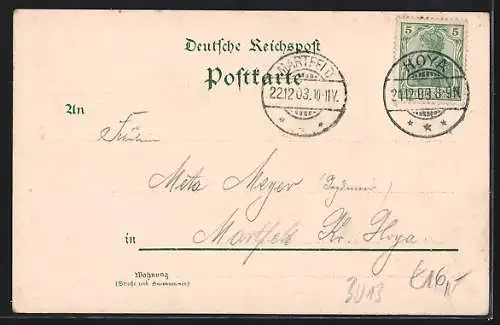 Deutsche Reichspost
Postkarte
MARTFELD
22.12.03.10-11V.
HOYA
5 5
21.12.03.8-9N.
An
Fräulein
Meta Meyer
in Martfeld Kr. Hoya.
Wohnung
(Straße und Hausnummer)
3013